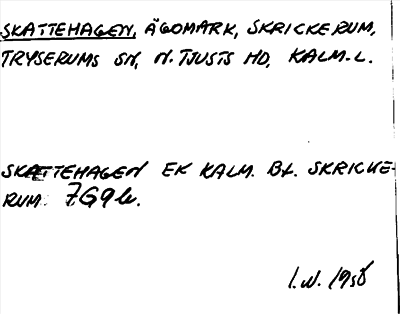 SKATTEHAGEN, ÄGOMARK, SKRICKERUM,
TRYSERUMS SN, N. TJUSTS HD, KALM. L.
SKATTEHAGEN EK KALM. Bl. SKRICKE-
RUM. 7G9b.
I.W. 1958